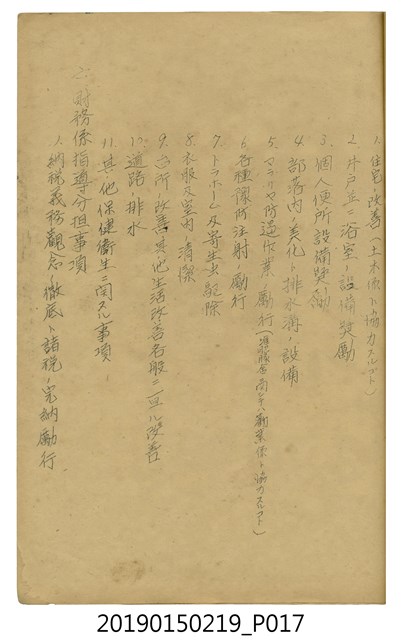 1. 住宅ノ改善（土木係ト協力スルコト）
2. 井戸並ニ浴室ノ設備奨勵
3. 個人便所設備奨勵
4. 部落内ノ美化ト排水溝ノ設備
5. マラリヤ防遏作業ノ勵行
6. 各種豫防注射ノ勵行
7. トラホーム及寄生虫驅除
8. 衣服及室内ノ清潔
9. 台所ノ改善其ノ他生活改善各般ニ亘ル改善
10. 道路ノ排水
11. 其ノ他保健衞生ニ関スル事項
六. 財務係指導分担事項
1. 納税義務觀念ノ徹底ト諸税ノ完納勵行
20190150219_P017